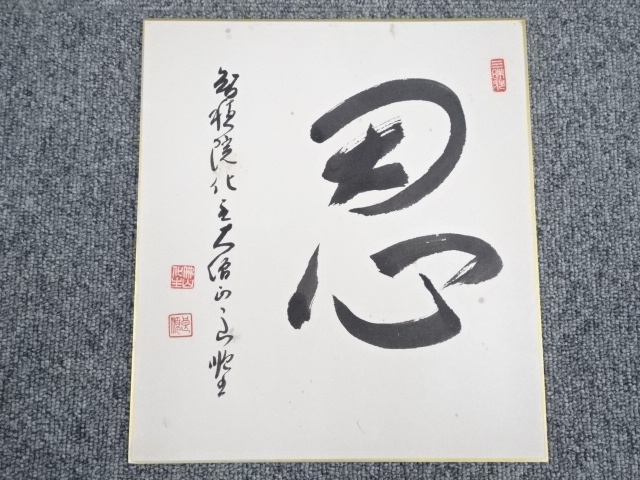 恩
智積院化主大僧正良